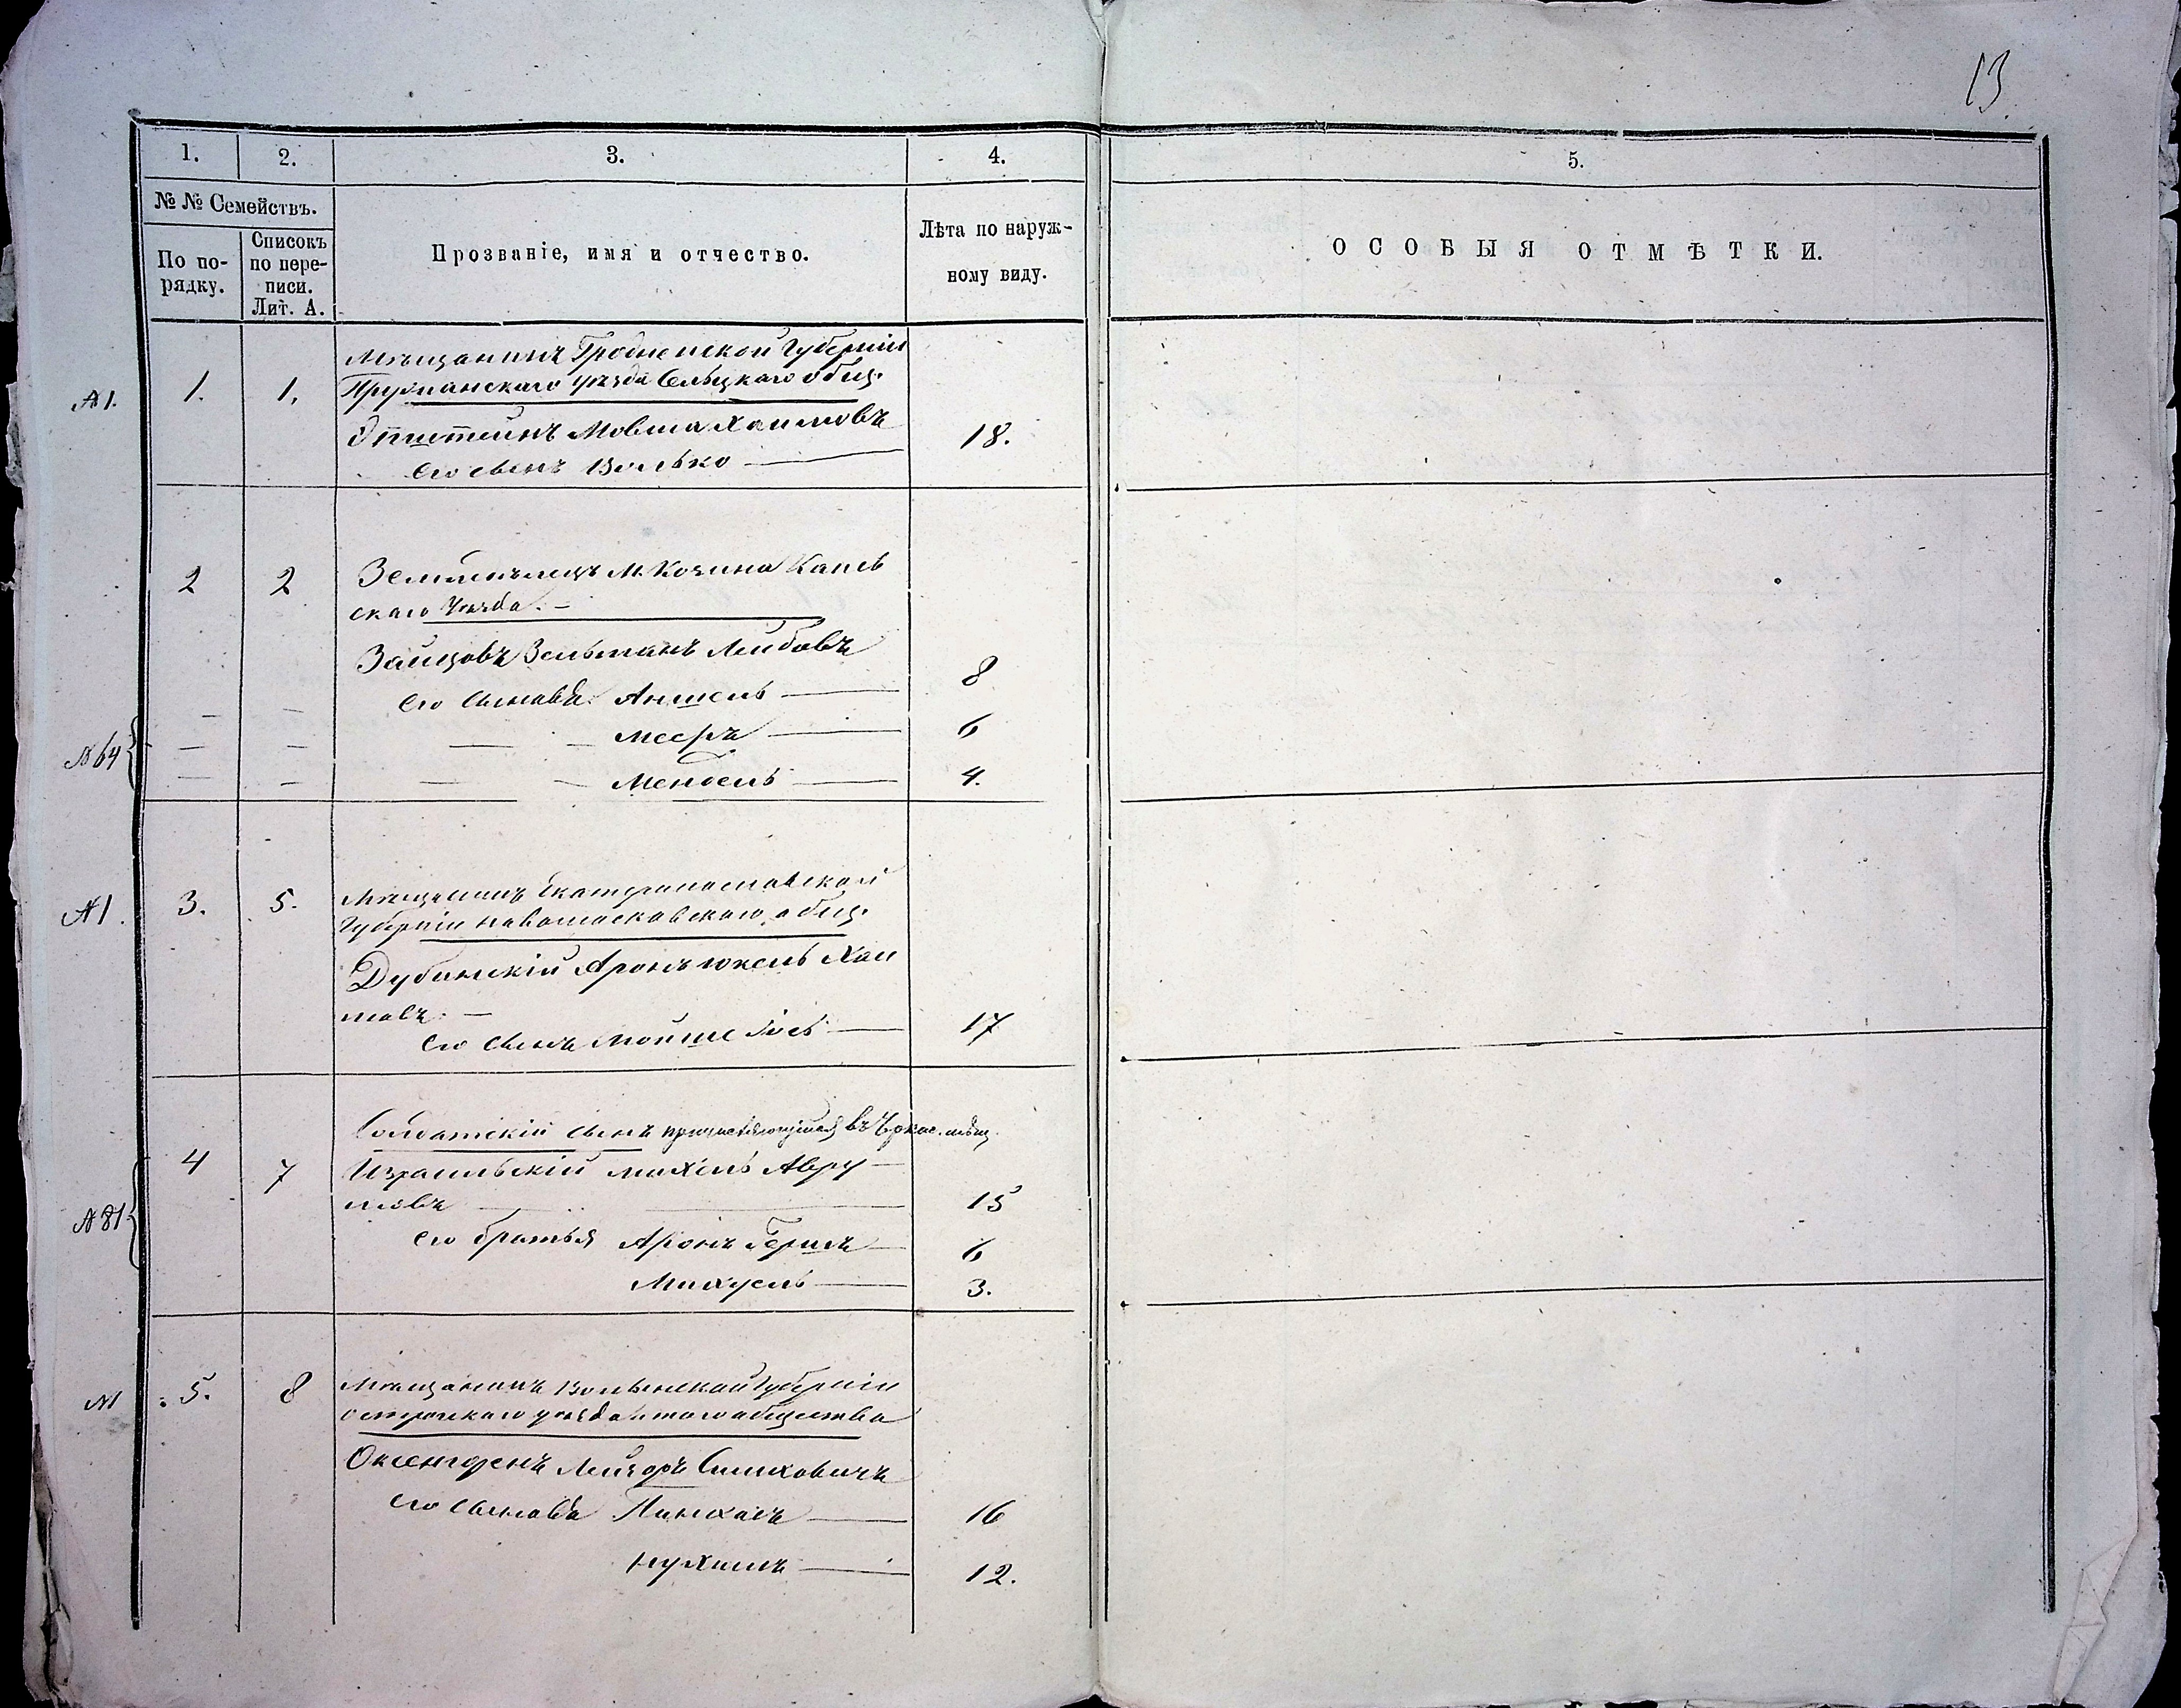 13.
1. 2. 3. 4. 5.
№ № Семействъ.
По по-
рядку.
Списокъ
по пере-
писи.
Лит. А.
Прозваніе, имя и отчество.
Лѣта по наруж-
ному виду.
ОСОБЫЯ ОТМѢТКИ.
Мѣщанинъ Гродненской Губерніи
№1. 1. 1. Пружанскаго уѣзда Сельцкаго общ.
Эпштейнъ Мовша Хаимовъ 18.
Его сынъ Волько
2 2 Земледѣлецъ М. Козина Канев
скаго Уѣзда.
Зайцовъ Зельманъ Лейбовъ
Его сыновья: Аншель 8
Мееръ 6
№64 Мендель 4.
№1. 3. 5. Мѣщанинъ Екатеринославской
Губерніи Новомосковскаго общ.
Дубинскій Аронъ Юкель Хаи
мовъ.
Его сынъ Мойше Іось 17
Солдатскій сынъ причисляющійся въ Черкас. мѣщ.
4 7 Израильскій Михель Авру
мовъ 15
№81 Его братья Аронъ Гершъ 6
Михуель 3.
№1 5. 8 Мѣщанинъ Волынской Губерніи
Острожскаго уѣзда и того общества
Оксенгоренъ Лейзоръ Симховичъ
Его сыновья Пинхасъ 16
Нухимъ 12.